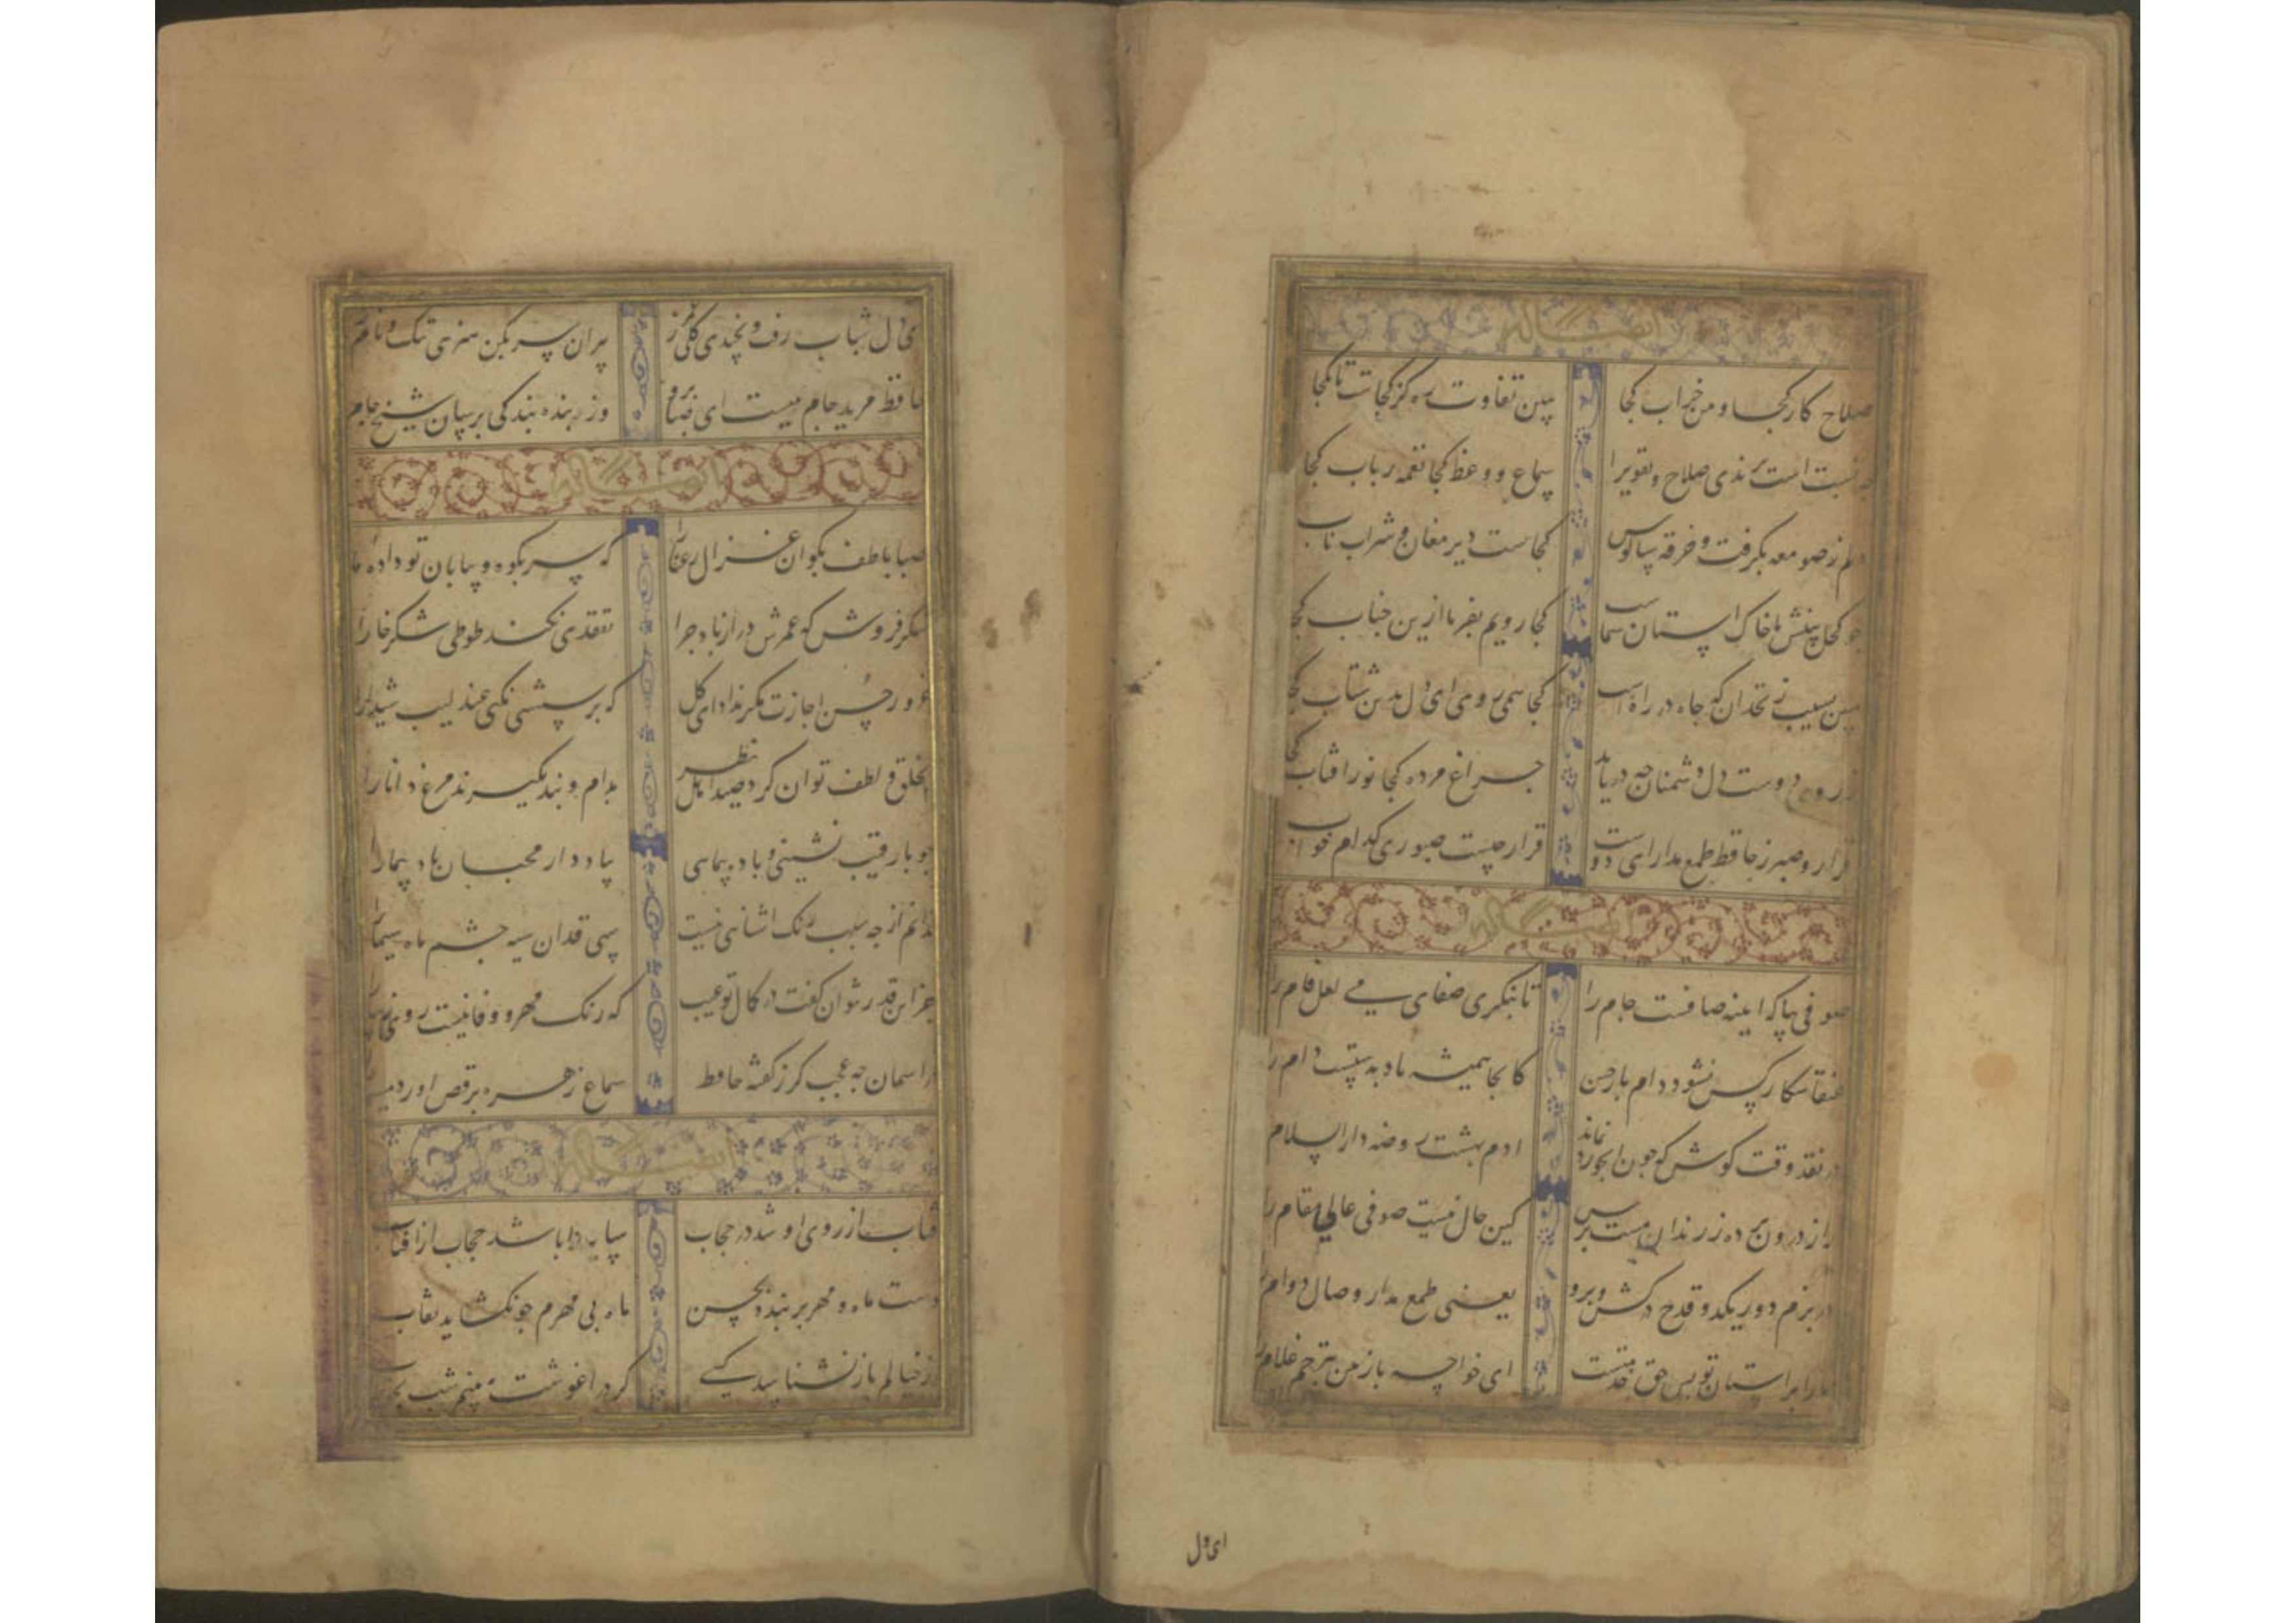 ایضا له
صلاح کار کجا و من خراب کجا ببین تفاوت ره کز کجاست تا بکجا
نسبت است برندی صلاح و تقوی را سماع و وعظ کجا نغمه رباب کجا
دلم ز صومعه بگرفت و خرقه سالوس کجاست دیر مغان و شراب ناب
چو کحل بینش ما خاک استان شماست کجا رویم بفرما ازین جناب کجا
مبین بسیب زنخدان که چاه در راه است کجا همی روی ای دل بدین شتاب کجا
ز روی دوست دل دشمنان چه دریابد چراغ مرده کجا نور افتاب کجا
قرار و صبر ز حافظ طمع مدار ای دوست قرار چیست صبوری کدام خواب
ایضا له
صوفی بیا که اینه صافست جام را تا بنگری صفای می لعل فام را
عنقا شکار کس نشود دام باز چین کانجا همیشه باد بدستست دام را
در نقد وقت کوش که چون ابخور نماند ادم بهشت روضه دار السلام
راز درون پرده ز رندان مست پرس کین حال نیست صوفی عالی مقام را
در بزم دور یکدو قدح درکش و برو یعنی طمع مدار وصال دوام را
ما را بر استان تو بس حق خدمتست ای خواجه باز بین بترحم غلام را
ای دل
ای دل شباب رفت و نچیدی گلی ز پیران سر بکن هنری ننگ و نام را
حافظ مرید جام میست ای صبا برو وز بنده بندگی برسان شیخ جام
ایضا له
صبا بلطف بگو ان غزال رعنا را که سر بکوه و بیابان تو داده ما
شکر فروش که عمرش دراز باد چرا تفقدی نکند طوطی شکرخا را
غرور حسن اجازت مگر نداد ای گل که پرسشی نکنی عندلیب شیدا را
بخلق و لطف توان کرد صید اهل نظر بدام و بند نگیرند مرغ دانا را
چو با رقیب نشینی و باده پیمایی بیاد دار محبان باد پیما را
ندانم از چه سبب رنگ اشنایی نیست سهی قدان سیه چشم ماه سیما را
جز این قدر نتوان گفت در کمال تو عیب که رنگ مهر و وفا نیست روی زیبا
در اسمان چه عجب گر ز گفته حافظ سماع زهره برقص اورد
ایضا له
افتاب از روی او شد در حجاب سایه را باشد حجاب از افتاب
دست ماه و مهر بر بندد بحسن ماه بی مهرم چو بگشاید نقاب
از خیالم باز نشناسد کسی گر در اغوشت ببینم شب بخواب